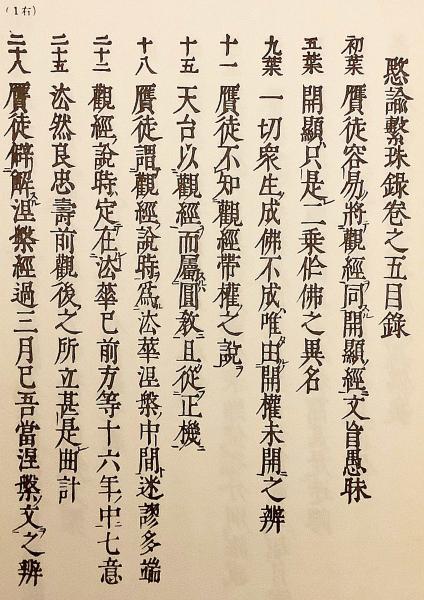 (1右)
愍諭繫珠錄卷之五目錄
初葉 贋徒容易將觀經同開顯經文旨愚昧
五葉 開顯只是二乘作佛之異名
九葉 一切衆生成佛不成唯由開權未開之辨
十一 贋徒不知觀經帶權之說
十五 天台以觀經而屬圓敎且從正機
十八 贋徒謂觀經說時爲法華涅槃中間迷謬多端
二十二 觀經說時定在法華已前方等十六年中七意
二十五 法然良忠壽前觀後之所立甚是曲計
二十八 贋徒僻解涅槃經過三月已吾當涅槃文之辨